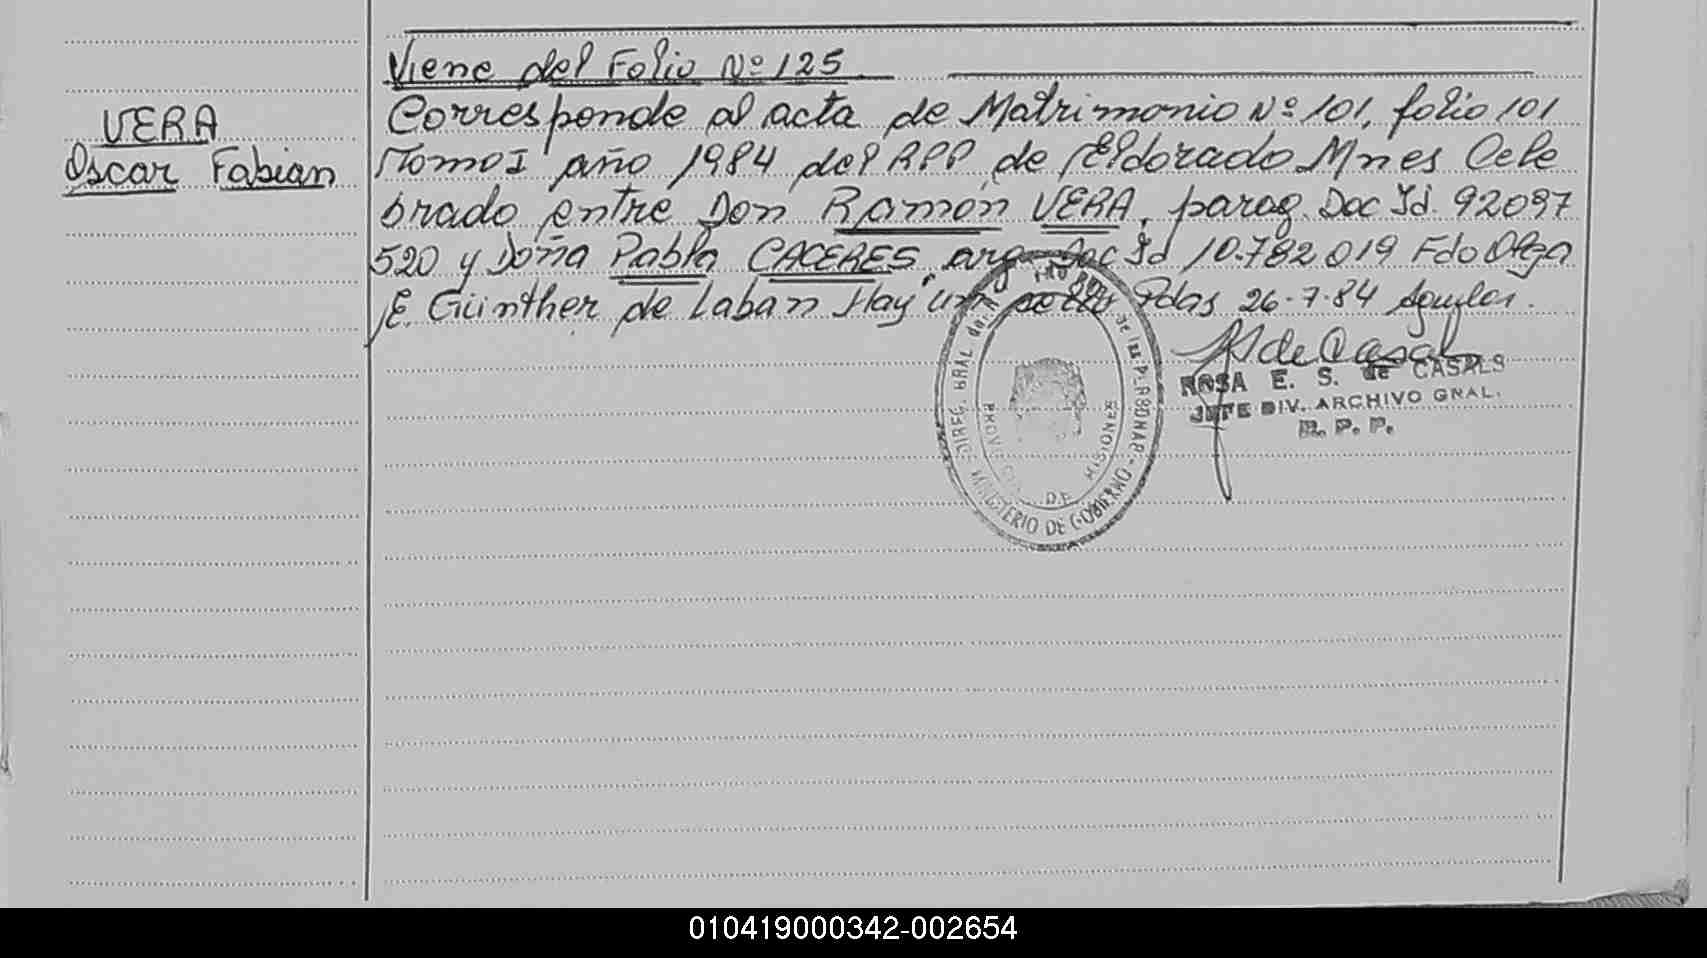 Viene del Folio Nº 125
VERA
Oscar Fabian
Corresponde al acta de Matrimonio Nº 101, folio 101
Tomo I año 1984 del RPP de Eldorado Mnes Cele
brado entre Don Ramón VERA, parag. Doc Id. 92097
520 y Doña Pabla CACERES, arg. Doc Id 10.782.019 Fdo Olga
E. Günther de Laban Hay un sello Pdas 26-7-84 Aguilar.
ROSA E. S. de CASALS
JEFE DIV. ARCHIVO GRAL.
R. P. P.
DIREC. GRAL del de las PERSONAS
MINISTERIO DE GOBIERNO
PROVINCIA DE MISIONES
010419000342-002654